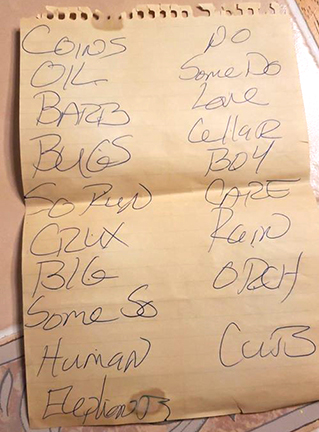 Coins
OIL
BARB
BUGS
So Run
CRUX
BIG
Some So
Human
DO
Some Do
Love
Cellar
BOY
CARE
Rain